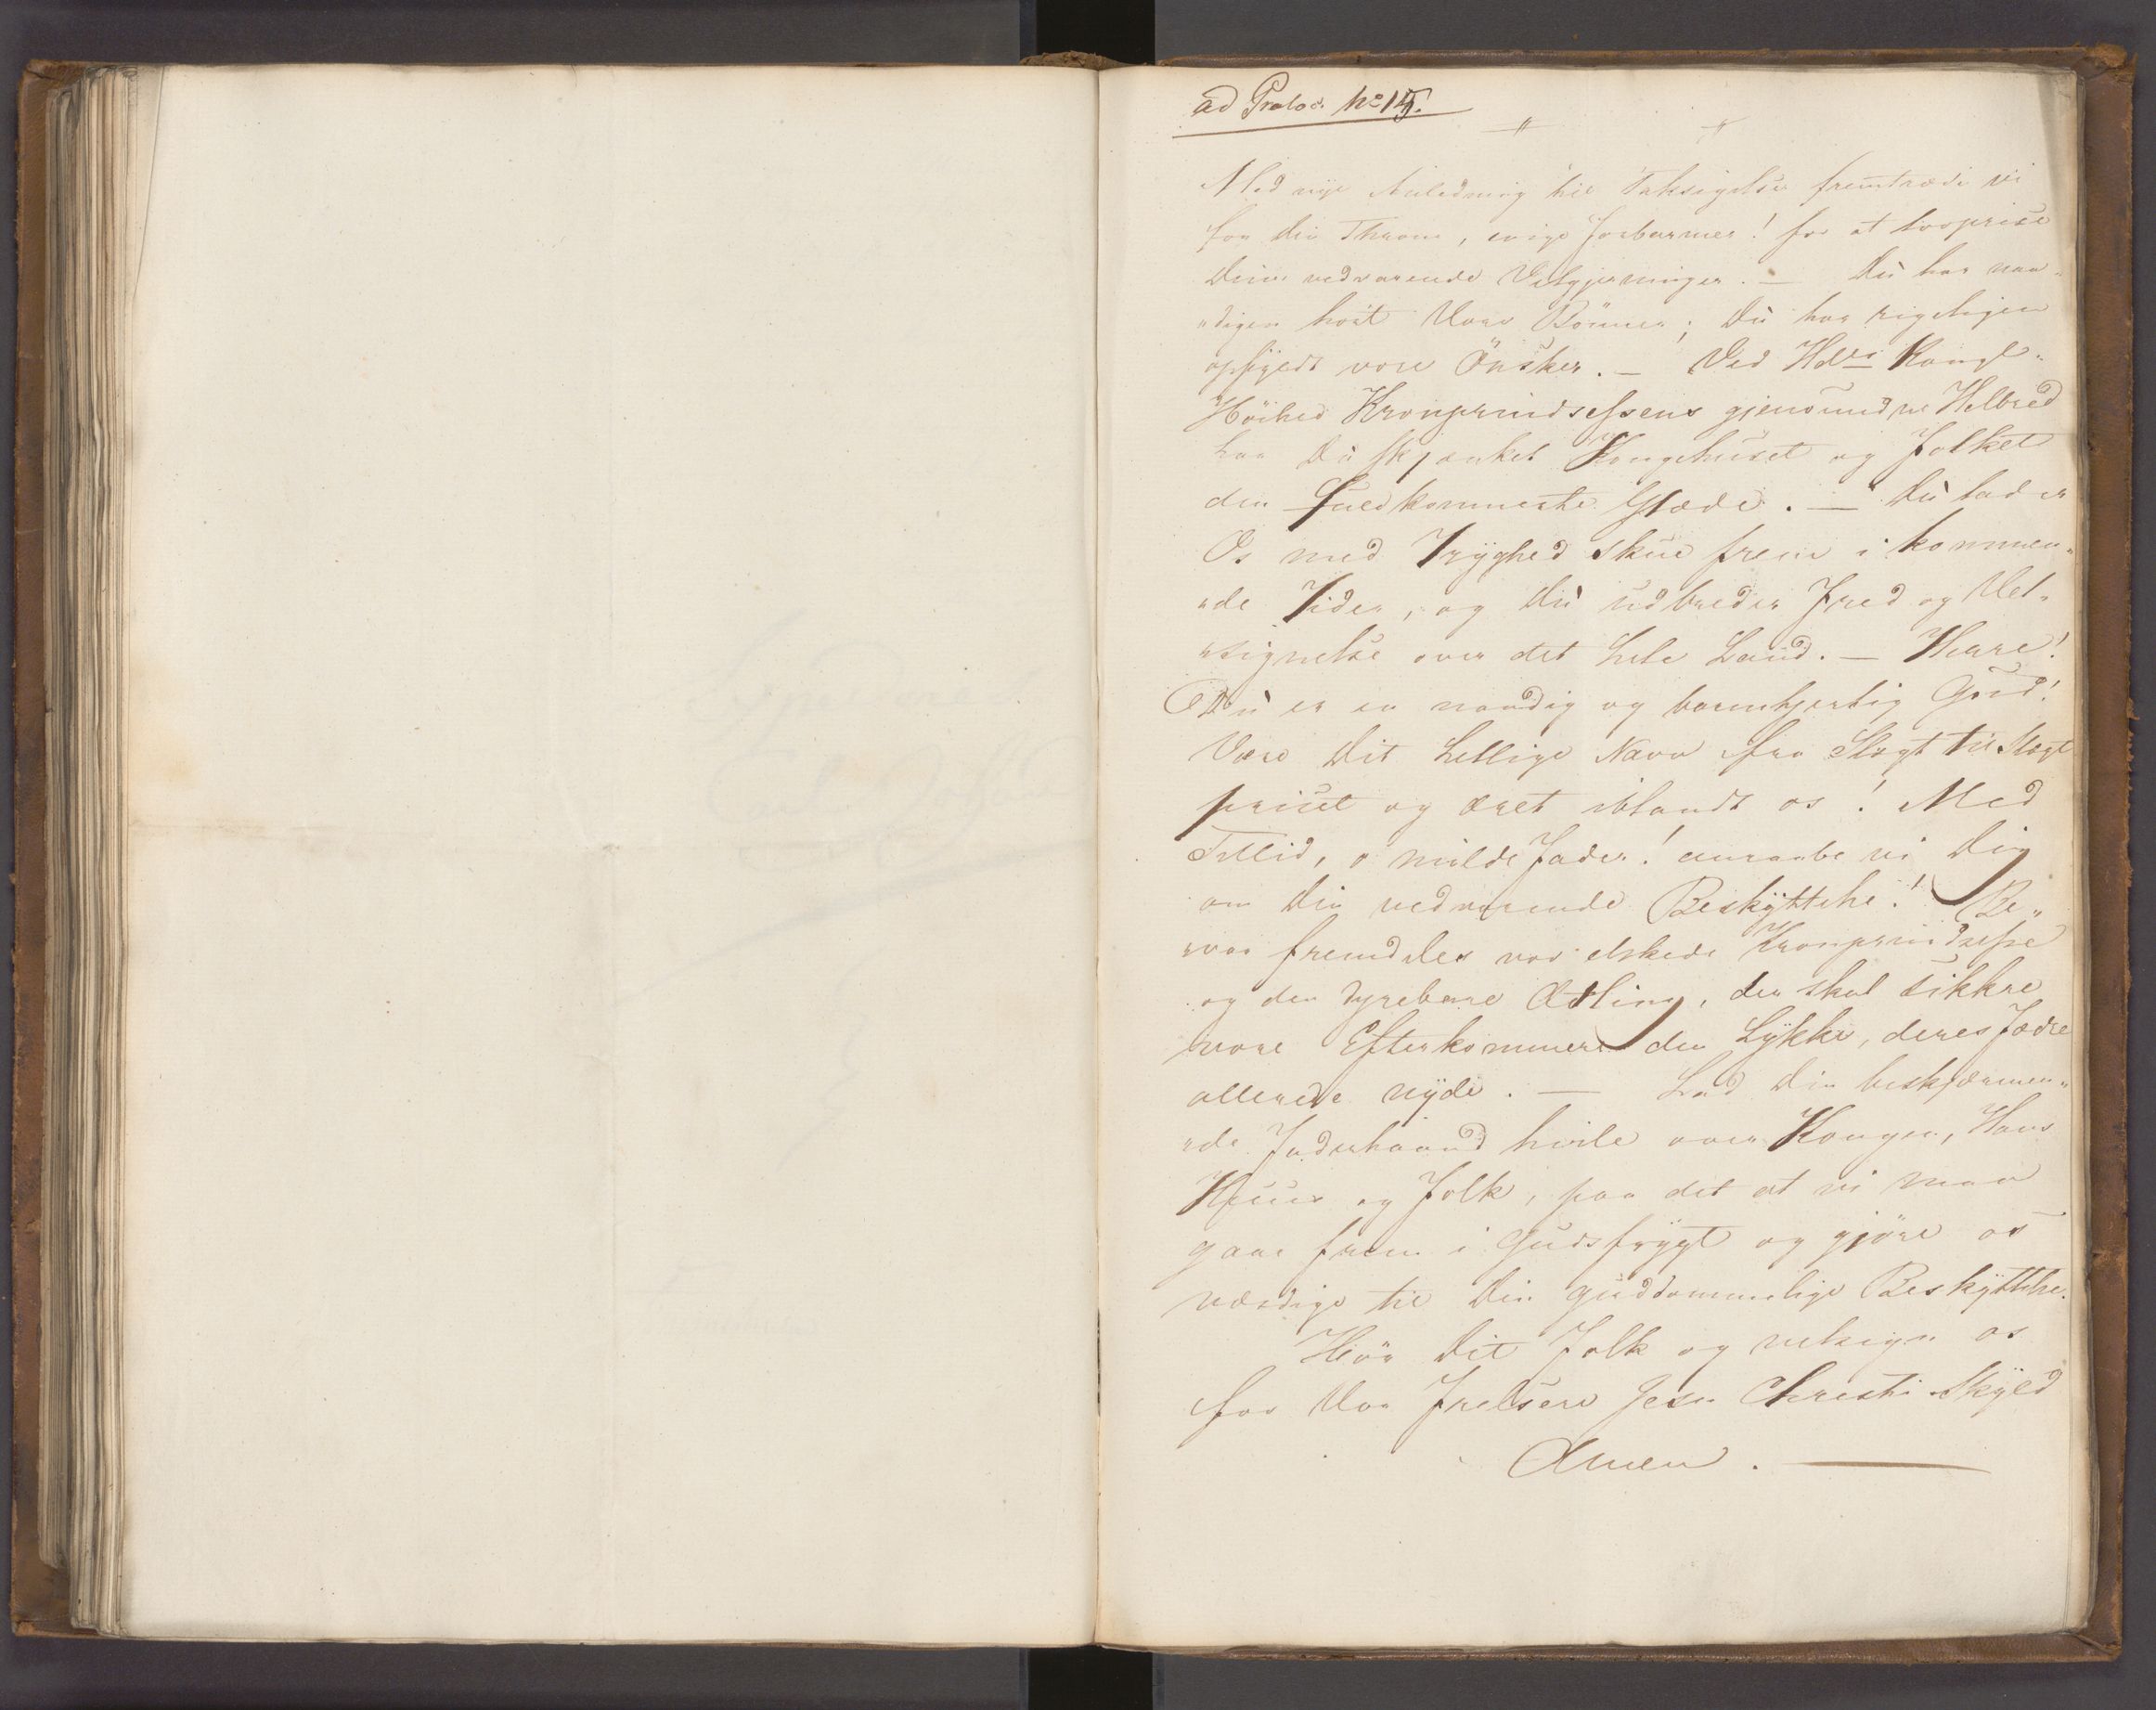 ad Protoc. No 15.
Med nye Anledning til Taksigelse fremtræde vi
for din Throne, evige Forbarmer! for at lovprise
Dine vedvarende Velgjerninger. — Du har naa„
„digen hört Vore Bönner; Du har rigeligen
opfyldt vore Önsker. — Ved Hdes Kongl.
Höihed Kronprindsessens gjenvundne Helbred
har Du skjænket Kongehuset og Folket
den fuldkomneste Glæde. — Du lader
Os med Tryghed skue frem i kommen„
„de Tider, og Du udbreder Fred og Vel„
„signelse over det hele Land. — Herre!
Du er en naadig og barmhjertig Gud!
Være Dit hellige Navn fra Slægt til Slægt
priset og æret iblandt os! Med
Tillid, o milde Fader! anraabe vi Dig
om Din vedvarende Beskyttelse! Be„
„var fremdeles vor elskede Kronprindsesse
og den dyrebare Ætling, der skal sikkre
vore Efterkommere den Lykke, deres Fædre
allerede nyde. — Lad Din beskjærmen„
„de Faderhaand hvile over Kongen, Hans
Huus og Folk, paa det at vi maa
gaae frem i Gudsfrygt og gjöre os
værdige til Din guddommelige Beskyttelse.
Hör Dit Folk og velsign os
for Vor Frelsere Jesu Christi Skyld
Amen. —